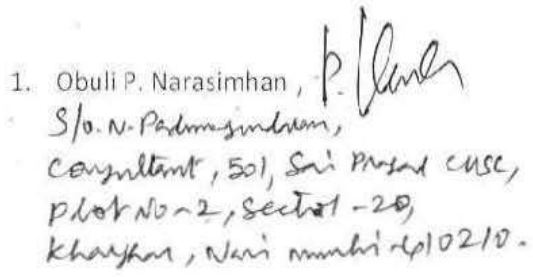 1. Obuli P. Narasimhan,
S/o. N. Padmasundaram,
Consultant, 501, Sai Prasad CHSC,
Plot No-2, Sector-20,
Kharghar, Navi Mumbai-410210.